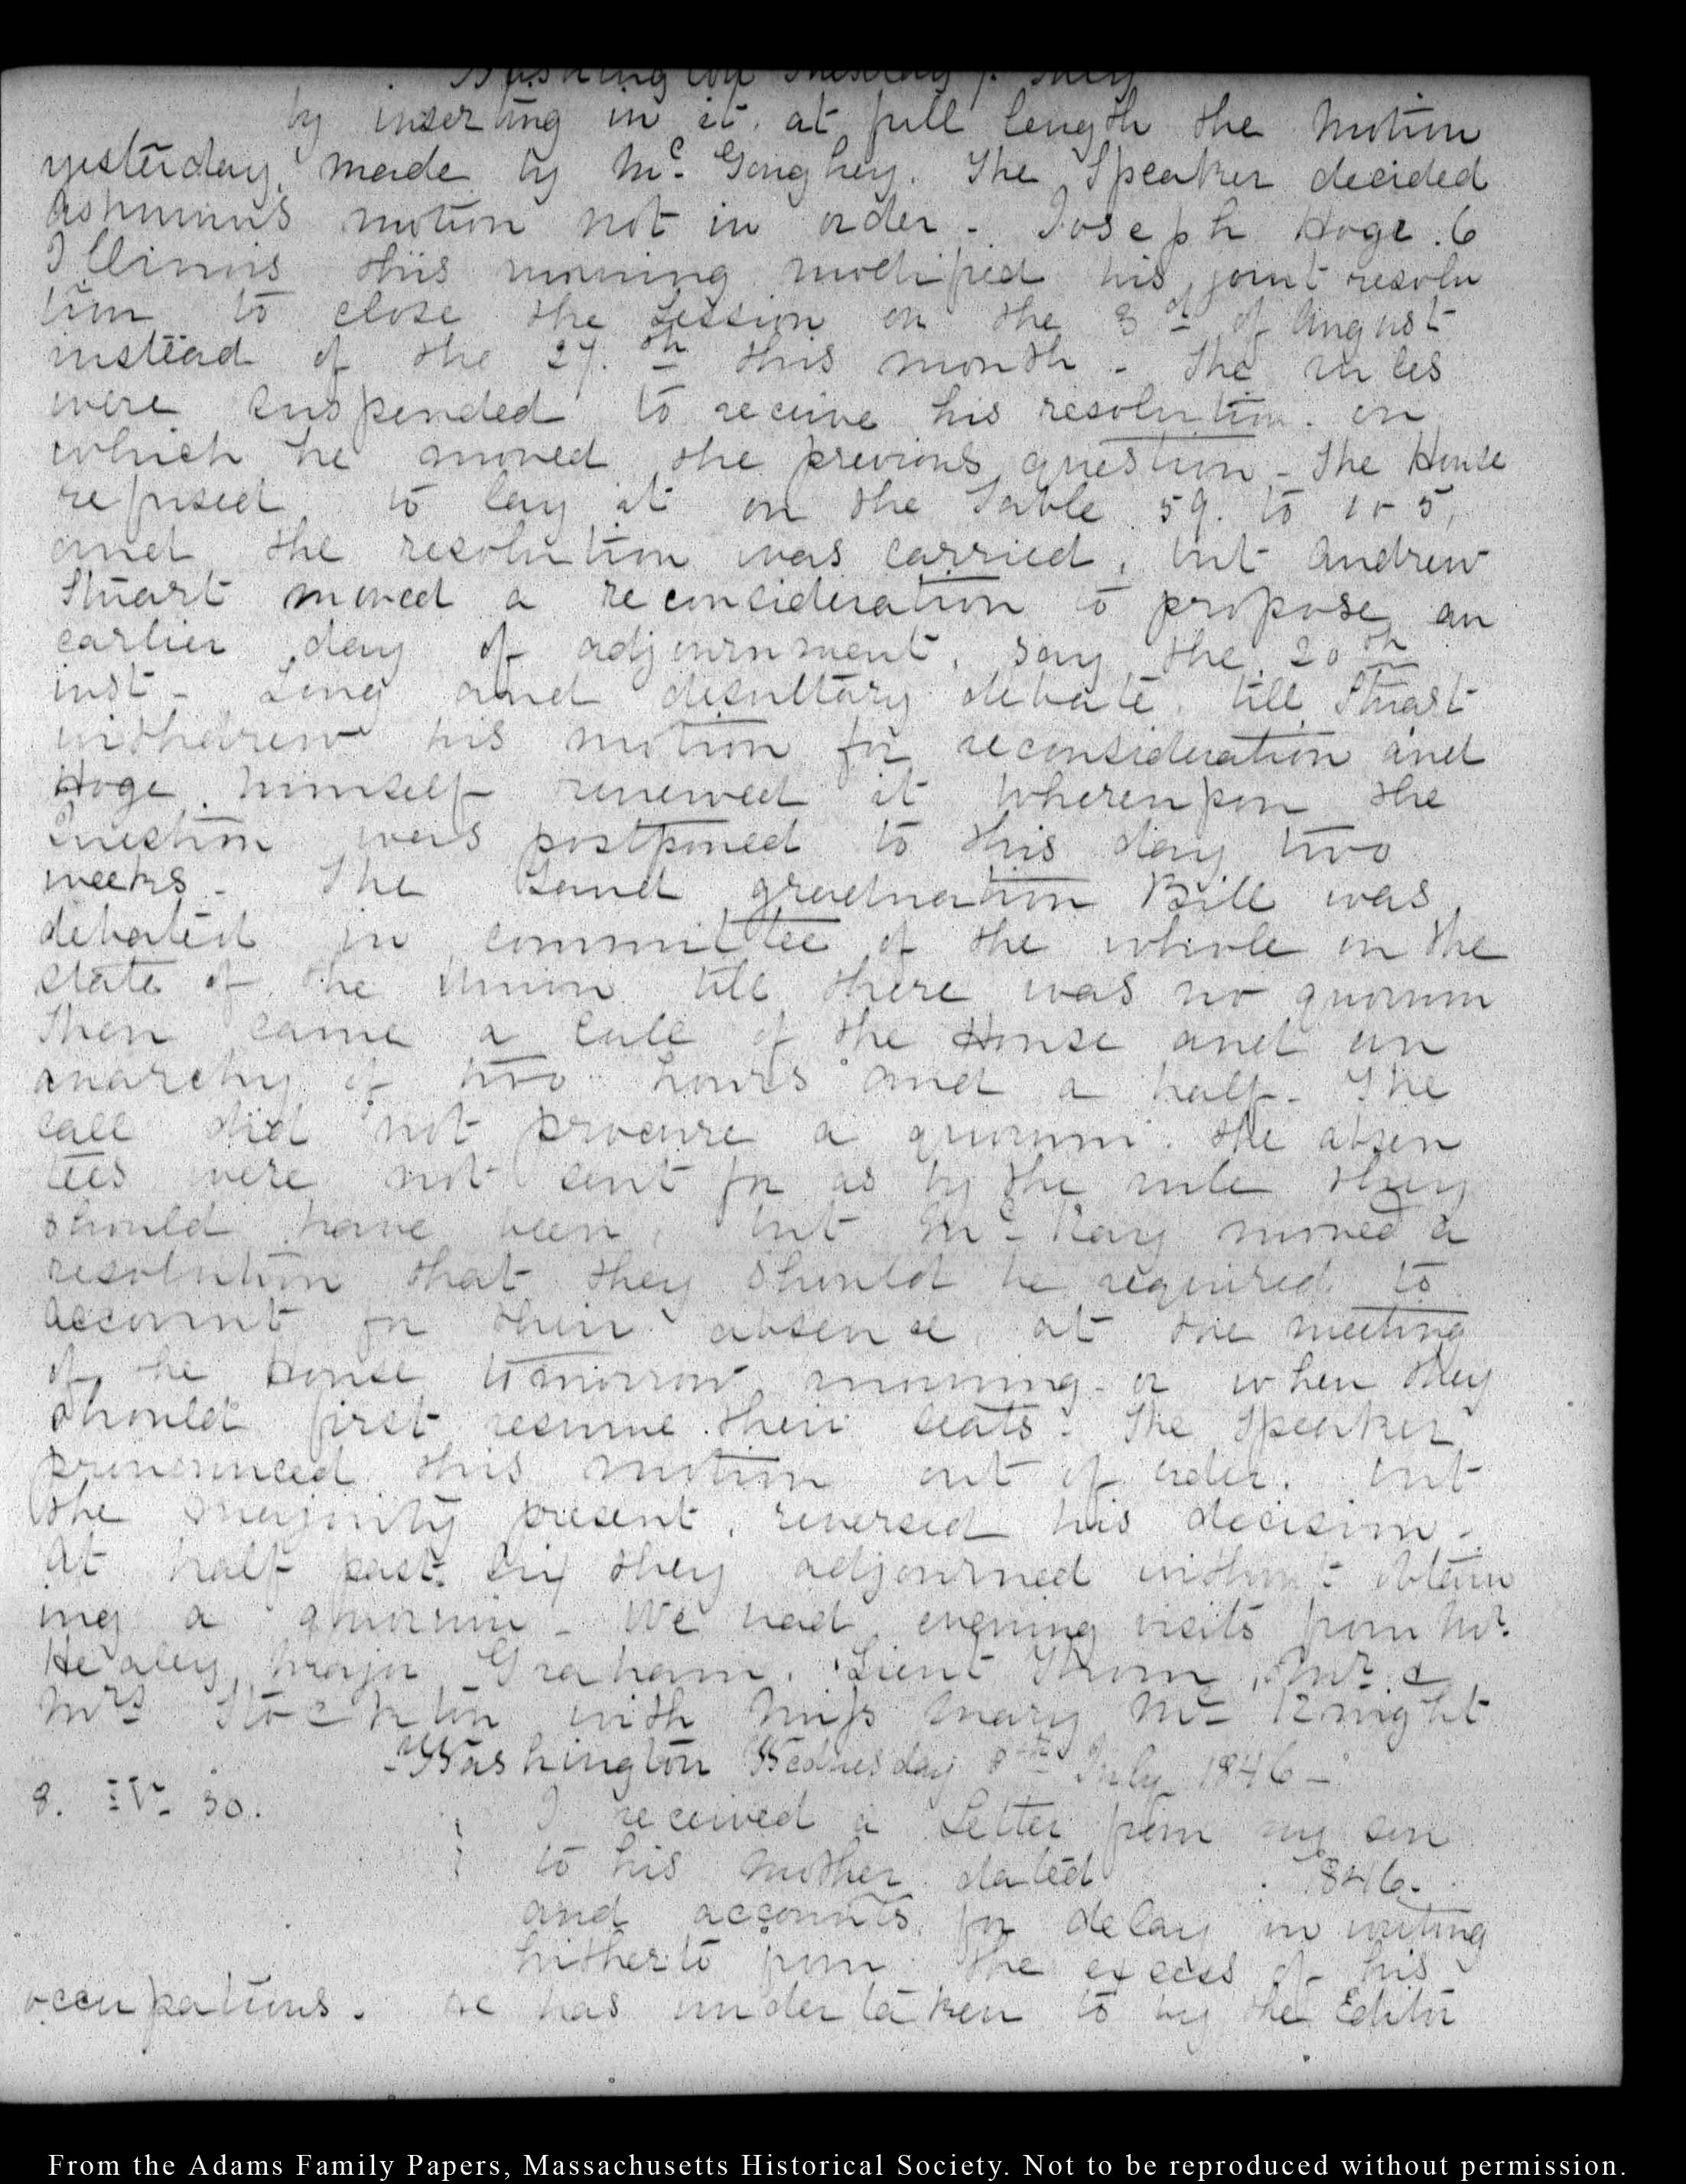 Washington Tuesday 7. July
by inserting in it, at full length the motion
yesterday, made by Mc. Gaughey. The Speaker decided
Ashmun's motion not in order - Joseph Hoge. 6
Illinois this morning modified his joint resolu
tion to close the session on the 3d of August
instead of the 27.th this month - The rules
were suspended to receive his resolution. on
which he moved the previous question - The House
refused to lay it on the Table. 59. to 105,
and the resolution was carried, but Andrew
Stuart moved a reconsideration to propose an
earlier day of adjournment, say the 20th
inst - Long and desultory debate, till Stuart
withdrew his motion for reconsideration and
Hoge himself renewed it whereupon the
Question was postponed to this day two
weeks - The Land graduation Bill was
debated in committee of the whole on the
state of the Union till there was no quorum
Then came a call of the House and an
anarchy of two hours and a half - The
call did not procure a quorum. the absen
tees were not sent for as by the rule they
should have been, but Mc Kay moved a
resolution that they should be required to
account for their absence, at the meeting
of he House tomorrow morning - or when they
should first resume their seats - The Speaker
pronounced this motion out of order. but
the majority present, reversed his decision -
At half past six they adjourned without obtain
ing a quorum - We had evening visits from Mr.
Healey, Major Graham, Lieut Thom, Mr. &
Mrs Stockton with Miss Mary Mc Knight
Washington Wednesday 8th July 1846 -
8. IV. 30.
I received a Letter from my son
to his mother dated 1846.
and accounts for delay in writing
hitherto from the excess of his
occupations. he has undertaken to by the Editor
From the Adams Family Papers, Massachusetts Historical Society. Not to be reproduced without permission.